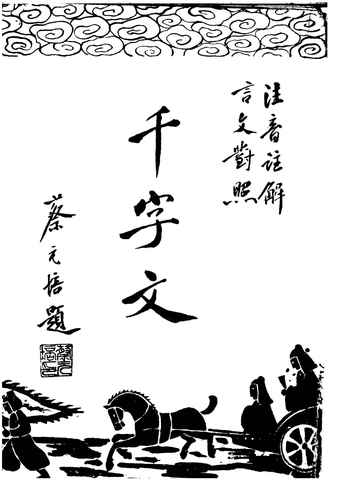 注音註解
言文對照
千字文
蔡元培題